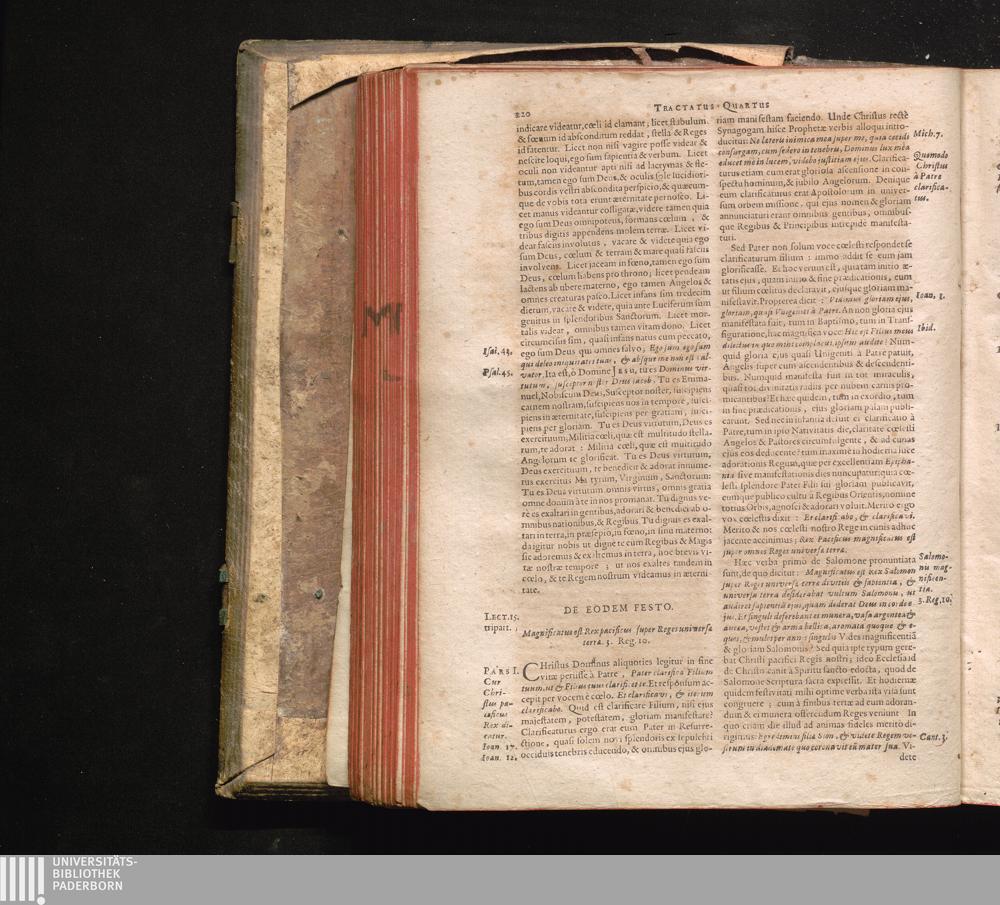 220
TRACTATUS QUARTUS
indicare videatur, cœli id clamant; licet stabulum
& fœnum id absconditum reddat, stella & Reges
id fatentur. Licet non nisi vagire posse videar &
nescire loqui, ego sum sapientia & verbum. Licet
oculi non videantur apti nisi ad lacrymas & fle-
tum, tamen ego sum Deus, & oculis sole lucidiori-
bus cordis vestri abscondita perspicio, & quæcum-
que de vobis tota erunt æternitate pernosco. Li-
cet manus videantur colligatæ, videte tamen quia
ego sum Deus omnipotens, formans cœlum, &
tribus digitis appendens molem terræ. Licet vi-
dear fasciis involutus, vacate & videte quia ego
sum Deus, cœlum & terram & mare quasi fasciis
involvens. Licet jaceam in fœno, tamen ego sum
Deus, cœlum habens pro throno; licet pendeam
lactens ab ubere materno, ego tamen Angelos &
omnes creaturas pasco. Licet infans sim tredecim
dierum, vacate & videte, quia ante Luciferum sum
genitus in splendoribus Sanctorum. Licet mor-
talis videar, omnibus tamen vitam dono. Licet
circumcisus sim, quasi infans natus cum peccato,
Isai. 43.
ego sum Deus qui omnes salvo; Ego sum ego sum
qui deleo iniquitates tuas, & absque me non est sal-
Psal. 45.
vator. Ita est, ô Domine JESU, tu es Dominus vir-
tutum, susceptor noster Deus Jacob. Tu es Emma-
nuel, Nobiscum Deus, Susceptor noster, suscipiens
carnem nostram, suscipiens nos in tempore, susci-
piens in æternitate, suscipiens per gratiam, susci-
piens per gloriam. Tu es Deus virtutum, Deus es
exercituum, Militia cœli, quæ est multitudo stella-
rum, te adorat: Militia cœli, quæ est multitudo
Angelorum te glorificat. Tu es Deus virtutum,
Deus exercituum, te benedicit & adorat innume-
rus exercitus Martyrum, Virginum, Sanctorum:
Tu es Deus virtutum omnis virtus, omnis gratia
omne donum à te in nos promanat. Tu dignus ve-
rè es exaltari in gentibus, adorari & benedici ab o-
mnibus nationibus, & Regibus. Tu dignus es exal-
tari in terra, in præsepio, in fœno, in sinu materno:
da igitur nobis ut dignè te cum Regibus & Magis
sic adoremus & exaltemus in terra, hoc brevis vi-
tæ nostræ tempore; ut nos exaltes tandem in
cœlo, & te Regem nostrum videamus in æterni-
tate.
DE EODEM FESTO.
LECT. 15.
tripart.
Magnificatus est Rex pacificus super Reges universæ
terræ. 3. Reg. 10.
PARS I.
Cur
Chri-
stus pa-
cificus
Rex di-
catur.
Ioan. 17.
Ioan. 12.
CHristus Dominus aliquoties legitur in fine
vitæ petiisse à Patre, Pater clarifica Filium
tuum, ut & Filius tuus clarificet te. Et responsum ac-
cepit per vocem è cœlo. Et clarificavi, & iterum
clarificabo. Quid est clarificare Filium, nisi ejus
majestatem, potestatem, gloriam manifestare?
Clarificaturus ergo erat eum Pater in Resurre-
ctione, quasi solem novi splendoris ex sepulchri
occiduis tenebris educendo, & omnibus ejus glo-
riam manifestam faciendo. Unde Christus rectè
Synagogam hisce Prophetæ verbis alloqui intro-
Mich. 7.
ducitur: Ne læteris inimica mea super me, quia cecidi:
consurgam, cum sedero in tenebris, Dominus lux mea
Quomodo
Christus
à Patre
clarifica-
tus.
educet me in lucem, videbo justitiam ejus. Clarifica-
turus etiam eum erat gloriosa ascensione in con-
spectu hominum, & jubilo Angelorum. Denique
eum clarificaturus erat Apostolorum in univer-
sum orbem missione, qui ejus nomen & gloriam
annunciaturi erant omnibus gentibus, omnibus-
que Regibus & Principibus intrepidè manifesta-
turi.
Sed Pater non solum voce cœlesti respondet se
clarificaturum filium: immo addit se eum jam
glorificasse. Et hoc verum est, quia tam initio æ-
tatis ejus, quam initio & fine prædicationis, eum
ut filium cœlitus declaravit, ejusque gloriam ma-
Ioan. 1.
nifestavit. Propterea dicit: Vidimus gloriam ejus,
gloriam, quasi Unigeniti à Patre. An non gloria ejus
manifestata fuit, tum in Baptismo, tum in Trans-
Ibid.
figuratione, hac magnifica voce: Hic est Filius meus
dilectus in quo mihi complacui, ipsum audite? Num-
quid gloria ejus quasi Unigeniti à Patre patuit,
Angelis super eum ascendentibus & descendenti-
bus. Numquid manifesta fuit in tot miraculis,
quasi tot divinitatis radiis per nubem carnis pro-
micantibus? Et hæc quidem, tum in exordio, tum
in fine prædicationis, ejus gloriam palam publi-
carunt. Sed nec in infantia defuit ei clarificatio à
Patre, tum in ipso Nativitatis die, claritate cœlesti
Angelos & Pastores circumfulgente, & ad cunas
ejus eos deducente? tum maximè in hodierna luce
adorationis Regum, quæ per excellentiam Epipha-
nia sive manifestationis dies nuncupatur: quia cœ-
lesti splendore Pater Filii sui gloriam publicavit,
eumque publico cultu à Regibus Orientis, nomine
totius Orbis, agnosci & adorari voluit. Merito ergo
vox cœlestis dixit: Et clarificabo, & clarificavi.
Merito & nos cœlesti nostro Rege in cunis adhuc
jacente accinimus; Rex Pacificus magnificatus est
super omnes Reges universæ terræ.
Salomo-
nis mag-
nificen-
tia.
3. Reg. 10.
Hæc verba primo de Salomone pronuntiata
sunt, de quo dicitur: Magnificatus est Rex Salomon
super Reges universæ terræ divitiis & sapientia, &
universa terra desiderabat vultum Salomonis, ut
audiret sapientiā ejus, quam dederat Deus in corde e-
jus. Et singuli deferebant ei munera, vasa argentea &
aurea, vestes & arma bellica, aromata quoque & e-
quos, & mulos per annos singulos. Vides magnificentiā
& gloriam Salomonis? Sed quia ipse typum gere-
bat Christi pacifici Regis nostri; ideo Ecclesia id
de Christo canit à Spiritu sancto edocta, quod de
Salomone Scriptura sacra expressit. Et hodiernæ
quidem festivitati mihi optime verba ista visa sunt
congruere; cum à finibus terræ ad eum adoran-
dum & ei munera offerendum Reges veniunt. In
quo etiam die illud ad animas fideles meritò di-
Cant. 3.
rigimus: Egredimini filiæ Sion, & videte Regem ve-
strum in diademate quo coronavit eū mater sua. Vi-
dete
UNIVERSITÄTS-
BIBLIOTHEK
PADERBORN